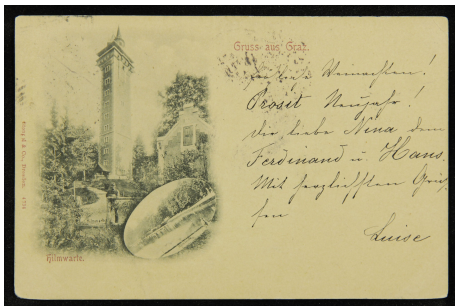 Gruss aus Graz.
Weinachten!
Prosit Neujahr!
Dir liebe Nina dem
Ferdinand u Hans.
Mit herzlichsten Grüs-
sen
Luise
Hilmwarte.